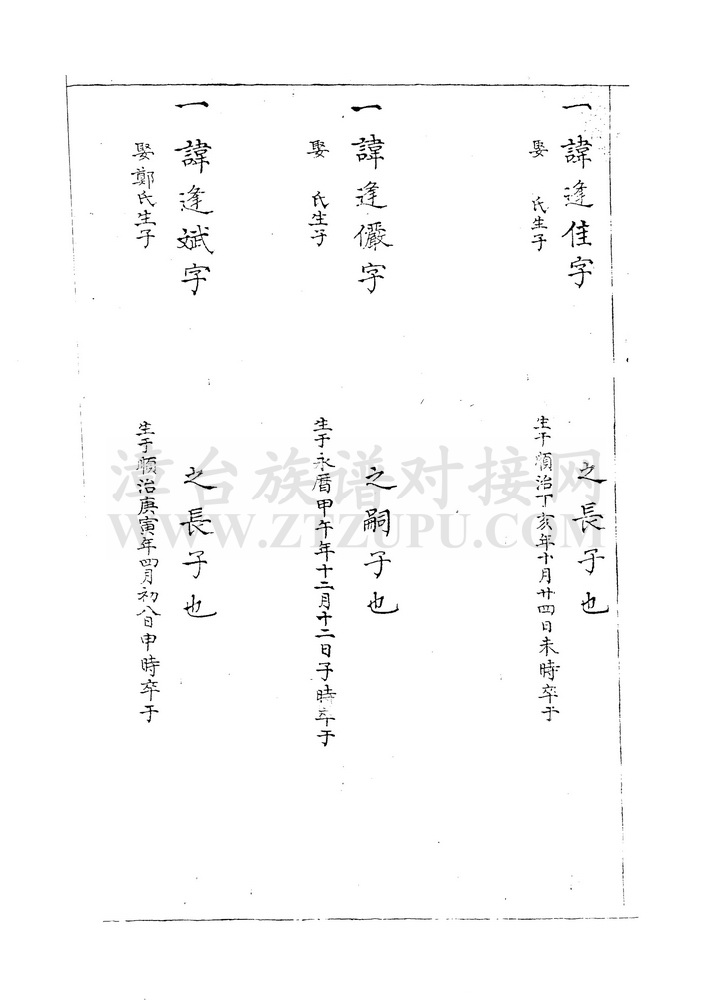 一諱逢佳字 之長子也
娶 氏生子 生于順治丁亥年十月廿四日未時卒于
一諱逢儼字 之嗣子也
娶 氏生子 生于永曆甲午年十二月十二日子時卒于
一諱逢斌字 之長子也
娶鄭氏生子 生于順治庚寅年四月初八日申時卒于
漳台族谱对接网
WWW.ZTZUPU.COM